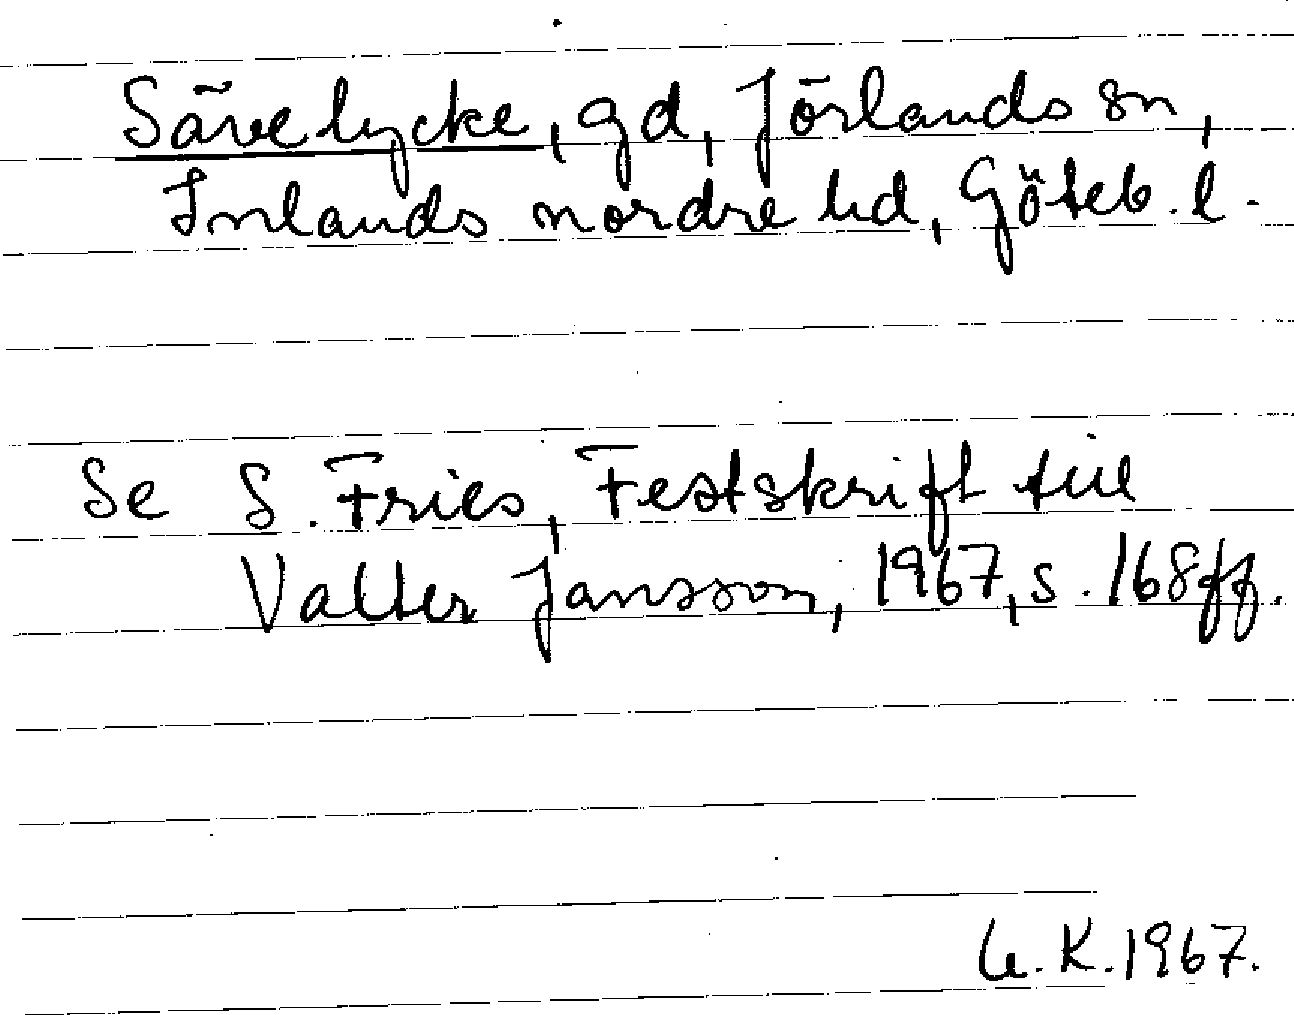 Sävelycke, gd, Jörlands sn,
Inlands nordre hd, Göteb. l.
Se S. Fries, Festskrift till
Valter Jansson, 1967, s. 168ff.
U. K. 1967.